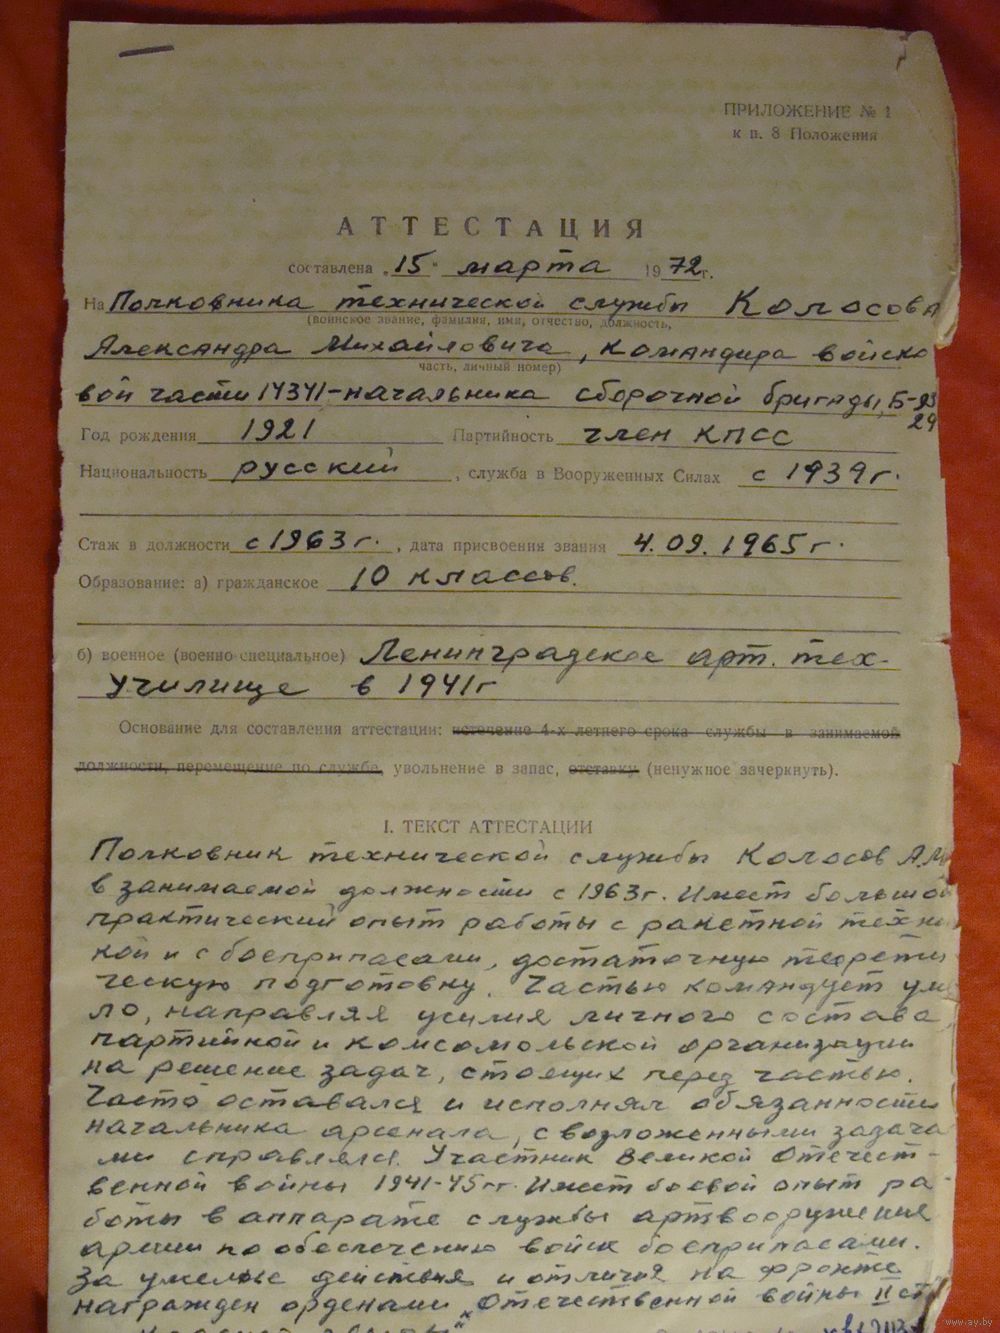 ПРИЛОЖЕНИЕ № 1
к п. 8 Положения
АТТЕСТАЦИЯ
составлена „15“ марта 1972г.
На Полковника технической службы Колосова
(воинское звание, фамилия, имя, отчество, должность,
Александра Михайловича, командира войско
часть, личный номер)
вой части 14341-начальника сборочной бригады, Б-93
29
Год рождения 1921 Партийность член КПСС
Национальность русский, служба в Вооруженных Силах с 1939г.
Стаж в должности с 1963г., дата присвоения звания 4.09.1965г.
Образование: а) гражданское 10 классов.
б) военное (военно-специальное) Ленинградское арт. тех-
училище в 1941г
Основание для составления аттестации: истечение 4-х летнего срока службы в занимаемой
должности, перемещение по службе, увольнение в запас, отставку (ненужное зачеркнуть).
I. ТЕКСТ АТТЕСТАЦИИ
Полковник технической службы Колосов А.М
в занимаемой должности с 1963г. Имеет большой
практический опыт работы с ракетной техни
кой и с боеприпасами, достаточную теорети
ческую подготовку. Частью командует уме
ло, направляя усилия личного состава,
партийной и комсомольской организации
на решение задач, стоящих перед частью.
Часто оставался и исполнял обязанности
начальника арсенала, с возложенными задача
ми справлялся. Участник Великой Отечест-
венной войны 1941-45гг. Имеет боевой опыт ра-
боты в аппарате службы артвооружения
армии по обеспечению войск боеприпасами.
За умелые действия и отличия на фронте
награжден орденами „Отечественной войны II ст"
www.ay.by